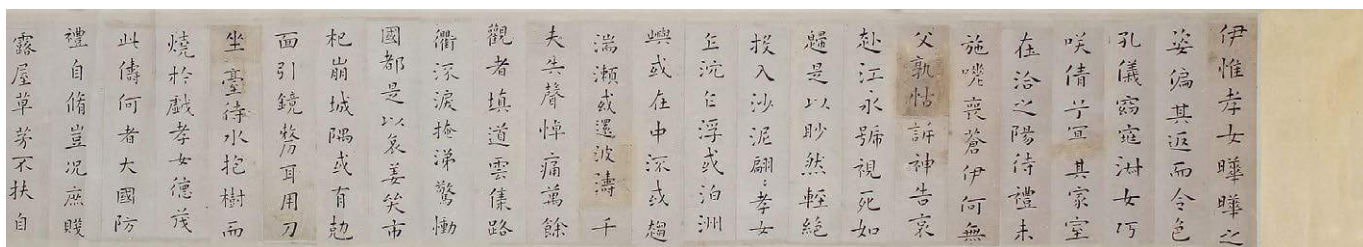 伊惟孝女曄曄之
姿偏其返而令色
孔儀窈窕淑女巧
咲倩兮宜其家室
在洽之陽待禮未
施嗟喪蒼伊何無
父孰怙訴神告哀
赴江永號視死如
歸是以眇然輕絕
投入沙泥翩〻孝女
乍沉乍浮或泊洲
嶼或在中流或趨
湍瀨或還波濤千
夫失聲悼痛萬餘
觀者填道雲集路
衢流淚掩涕驚慟
國都是以哀姜哭市
杞崩城隅或有剋
面引鏡剺耳用刀
坐臺待水抱樹而
燒於戲孝女德茂
此儔何者大國防
禮自脩豈況庶賤
露屋草茅不扶自